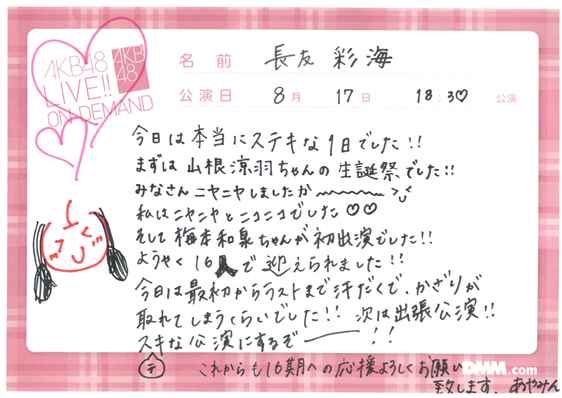 AKB48
LIVE!!
ON DEMAND
AKB
48
名前 長友 彩海
公演日 8月 17日 18:30 公演
今日は本当にステキな1日でした!!
まずは山根涼羽ちゃんの生誕祭でした!!
みなさんニヤニヤしましたか〜〜〜
私はニヤニヤとニコニコでした♡♡
そして梅本和泉ちゃんが初出演でした!!
ようやく16人で迎えられました!!
今日は最初からラストまで汗だくで、かざりが
取れてしまうくらいでした!! 次は出張公演!!
スキな公演にするぞー!!
テ
これからも16期への応援よろしくお願い
致します。あやみん
DMM.com